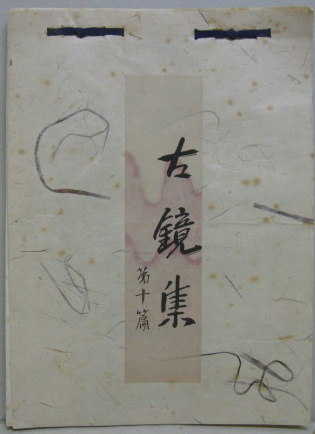 古鏡集
第十篇